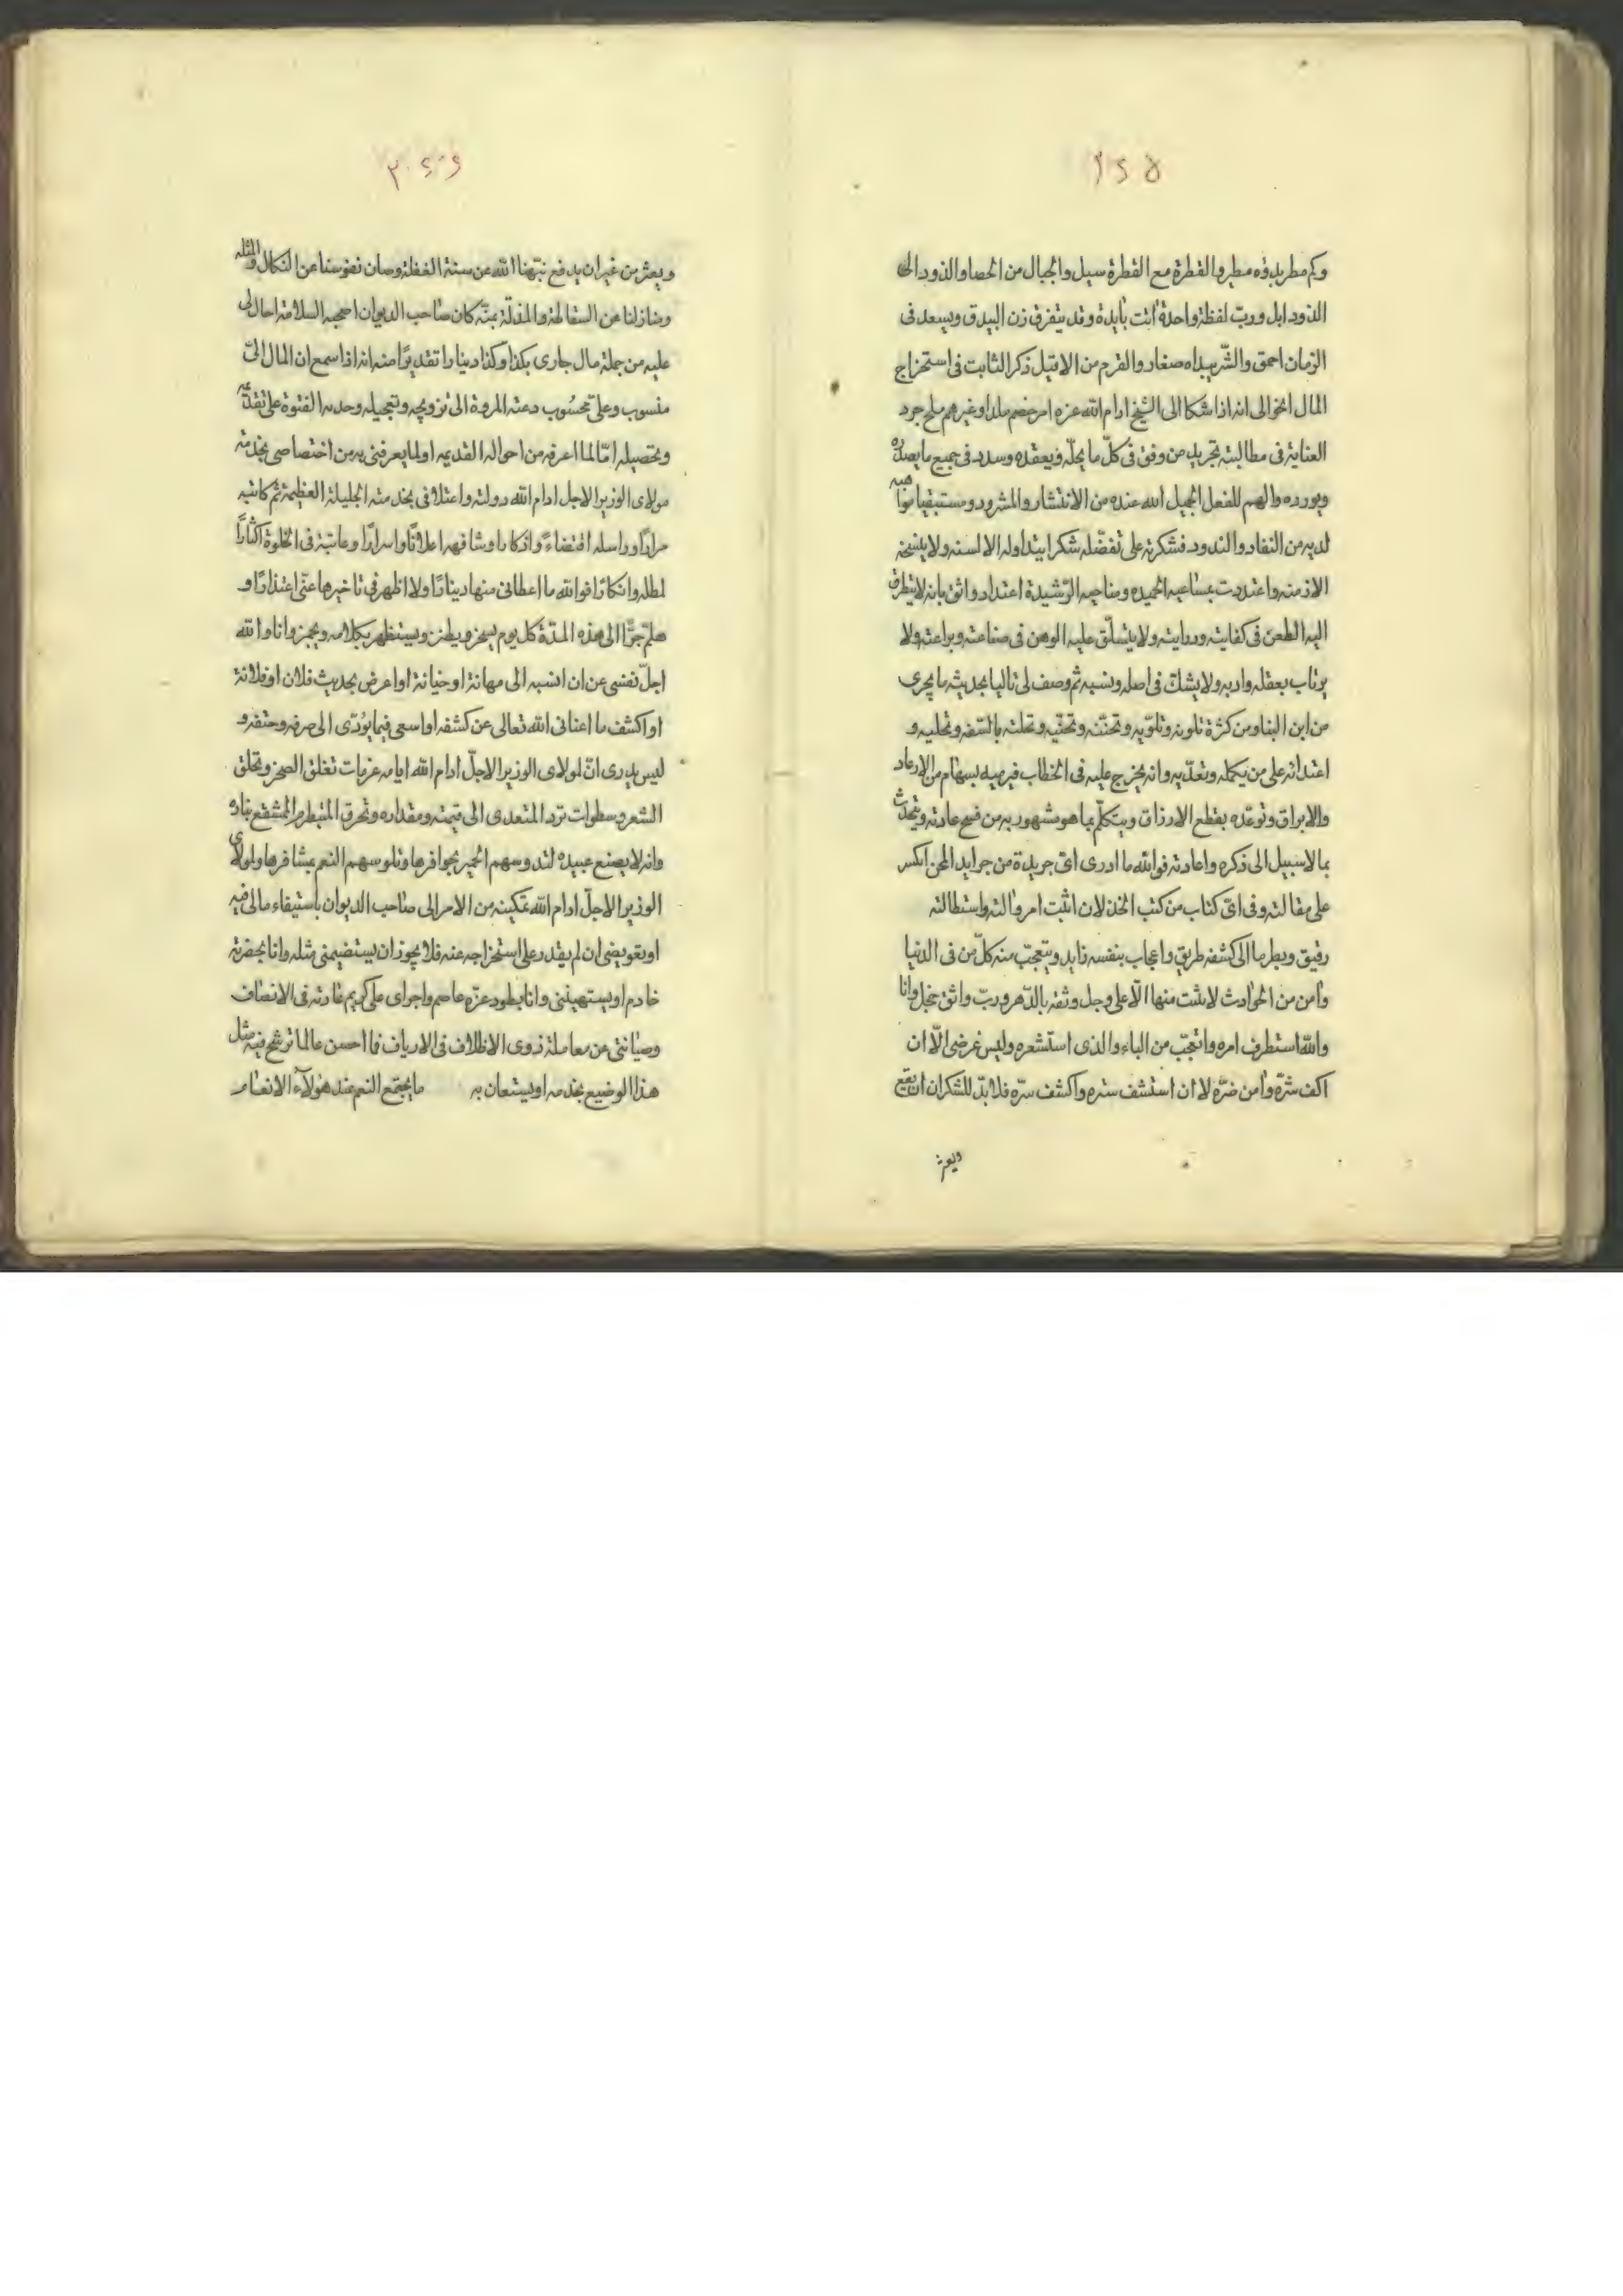 وكم مطر بدؤه مطير والقطرة مع القطرة سيل والجبال من الحصا والذود الى
الذود ابل ورب لفظة واحدة اتت بآبدة وقد يتفرق زن البيدق ويسعد فى
الزمان احمق والشر يبداه صغار والقرم من الافيل ذكر الثابت فى استخراج
المال الخوالى انه اذا شكا الى الشيخ ادام الله عزه امر خصم ملد او غيرهم ملح جرد
العناية فى مطالبته تجريد من وفق فى كل ما يحله ويعقده وسدد فى جميع ما يصدره
ويورده والهم للفعل الجميل الله عنده من الانتشار والشرود ومستبقيا مواهبه
لديه من النفار والندود فشكرته على تفضله شكرا يتداوله الالسنه ولا ينسخه
الازمنه واعتددت بمساعيه الحميده ومناحيه الرشيدة اعتداد واثق بانه لا يتطرق
اليه الطعن فى كفايته ودرايته ولا يتسلق عليه الوهن فى صناعته وبراعته ولا
يرتاب بعقله وادبه ولا يشك فى اصله ونسبه ثم وصف لى تاليا بحديثه ما يجرى
من ابن البنا ومن كثرة تلونه وتلويه وتحننه وتحنيه وتحلته بالسفه وتحليه و
اعتدائه على من يكمله وتعديه وانه يخرج عليه فى الخطاب فيرميه بسهام من الارعاد
والابراق وتوعده بقطع الارزاق ويتكلم بما هو مشهور به من قبيح عادته ويتحدث
بما لا سبيل الى ذكره واعادته فوالله ما ادرى اى جريدة من جرايد المحن اكسر
على مقالته وفى اى كتاب من كتب الخذلان اثبت امر والته واستطالته
رقيق وبطر ما الى كشفه طريق واعجاب بنفسه زايد ويتعجب منه كل من فى الدنيا
وامن من الحوادث لا يثبت منها الا على وجل وثقه بالدهر ورب واثق خجل وانا
والله استطرف امره واتعجب من الباء والذى استشعره وليس غرضى الا ان
اكف شره وامن ضره لا ان استشف ستره واكشف سره فلا بد للشكران ان يقع
ويعثر
ويعثر من غير ان يدفع نبهنا الله عن سنة الغفلة وصان نفوسنا عن النكال والمثله
ومنازلنا عن السقاطة والمذلة بمنه كان صاحب الديوان اصحبه السلامة احالنى
عليه من جملة مال جارى بكذا وكذا دينارا تقديرا منه انه اذا سمع ان المال الى
منسوب وعلى محسوب دعته المروة الى ترويجه وتعجيله وحدته الفتوة على تقديمه
وتحصيله اما لما اعرفه من احواله القديمه او لما يعرفنى به من اختصاصى بخدمته
مولاى الوزير الاجل ادام الله دولته واعتلاقى بخدمته الجليلة العظيمة ثم كاتبته
مرارا وراسله اقتضاء واذكارا وشافهه اعلانا واسرارا وعاتبته فى الخلوة اكثارا
لمطله وانكارا فوالله ما اعطانى منها دينارا ولا اظهر فى تاخيرها عنى اعتذارا و
هلم جرا الى هذه المدة كل يوم يسخر ويطنز ويستظهر بكلامه ويجمز وانا والله
اجل نفسى عن ان انسبه الى مهانة او خيانة او اعرض بحديث فلان او فلانة
او اكشف ما اعنانى الله تعالى عن كشفه او اسعى فيما يؤدى الى صرفه وحتفه و
ليس يدرى ان لمولاى الوزير الاجل ادام الله ايامه عزمات تفلق الصخر وتحلق
الشعر وسطوات ترد المتعدى الى قيمته ومقداره وتحرق المتبطرم المشقع بناره
وانه لا يصنع عبيده لتدوسهم الحمير بحوافرها وتلوسهم النعم بمشافرها ولمولاى
الوزير الاجل ادام الله تمكينه من الامر الى صاحب الديوان باستيفاء مالى فيه
او بتعويضى ان لم يقدر على استخراجه عنه فلا يجوز ان يستضيمنى مثله وانا بحضرته
خادم او يستهيننى وانا بطود عزه عاصم واجراى على كريم عادته فى الانصاف
وصيانتى من معاملة ذوى الاظلاف فى الارياف فما احسن عالما ترشح فيه مثل
هذا الوضيع بخدمه او يستعان به ما يجتمع النعم عند هؤلاء الانعام